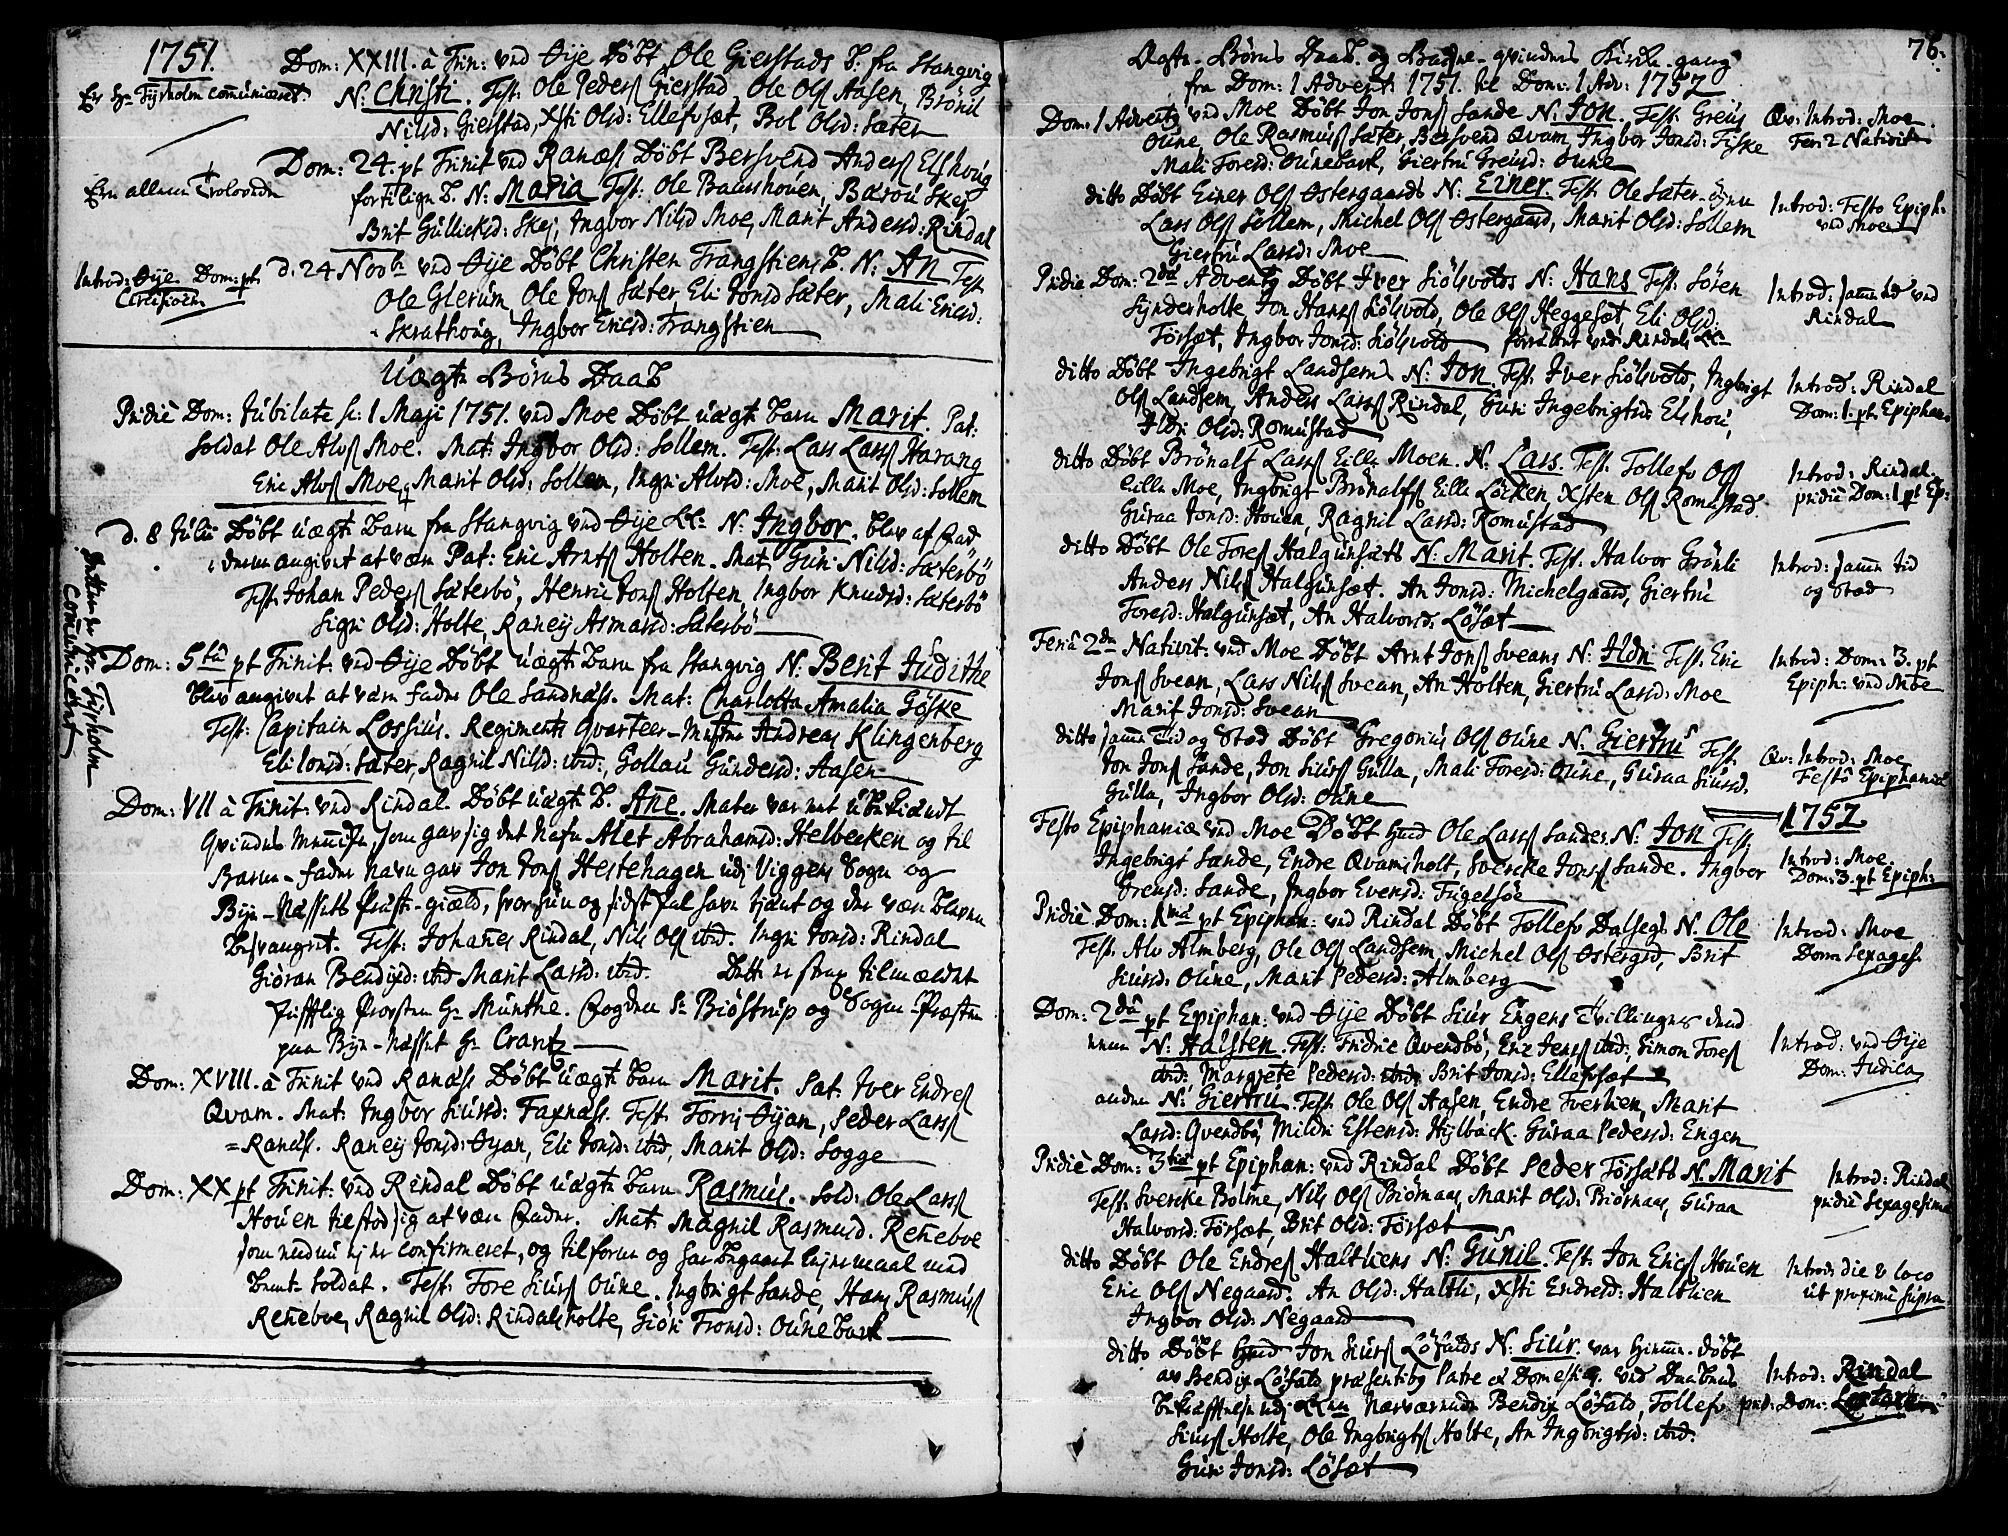 1751.
Dom: XXIII. à Trin: ved Øije Döbt Ole Gierstads B. fra Stangvig
N: Christi. Test: Ole Peders Gierstad, Ole Ols Aasen, Brönil
Nilsd: Gierstad, Xsti Olsd: Ellefsæt, Bol Olsd: Sæter
Hr Fyrholm communiceret.
Dom: 24. pt Trinit ved Ranæs Döbt Bersvend Anders Elshoug
fortilign B. N: Maria Test: Ole Baureshouen, Baroü Skej
Brit Gullicksd: Skej, Ingbor Nilsd Moe, Marit Andersd: Rindal
Ere allene Trolovede
d. 24 Novbr ved Øije Döbt Christen Trangstiens B. N: An Test
Ole Glerum, Ole Jons Sæter, Eli Jonsd Sæter, Mali Ericsd:
Skrathoug, Ingbor Ericsd: Trangstien
Introd: Øije Dom: pt
Uægte Börns Daab
Pridiè Dom: Jubilate s: 1 Maji 1751. ved Moe Döbt uægte barn Marit. Pat:
Soldat Ole Alvs Moe. Mat: Ingbor Olsd: Sollem. Test: Lars Lars Harang
Eric Alvs Moe, Marit Olsd: Sollem, Ingri Alvsd: Moe, Marit Olsd: Sollem
d. 8 Julii Döbt uægte barn fra Stangvig ved Øije K: N: Ingbor. blev af Fad
derne angivet at være Pat: Eric Arnts Holten. Mat: Guri Nilsd: Sæterbö
Test: Johan Peders Sæterbö, Henric Jons Holten, Ingbor Knudsd: Sæterbö
Sigri Olsd: Holte, Ranej Asmarsd: Sæterbö
Dom: 5ta pt Trinit: ved Øije Döbt uægte barn fra Stangvig N: Berit Judithe
blev angivet at være fader Ole Sandnæss. Mat: Charlotta Amalia Göske
Test: Capitain Lossius. Regiments Qvarteer-Mester Andreas Klingenberg
Eli Jonsd: Sæter, Ragnil Nilsd: ibid:, Gollau Gundersd: Aasen
Fyrholm
communiceret
Dom: VII à Trinit: ved Rindal Döbt uægte B. Añe. Mater var et ubekiendt
Qvindes Menniske, som gav sig det Nafn Alet Abrahamsd: Helbecken og til
Barne-fader Navn gav Jon Jons Hestehagen udj Viggens Sogn og
Byn-Næssets Præste-gield, hvor hun og sidst skal have tient og der være bleven
besvangret. Test: Johañes Rindal, Nils Ols ibid. Ingri Jonsd: Rindal
Giöran Bendixd: ibid Marit Larsd: ibid. Dette er strax tilmældet
skrifftlig Provsten Hr Munthe. Fogden Sr Biöstrup og Sogne-Præsten
paa Byn-Næsset Hr Crantz
Dom: XVIII. à Trinit ved Ranæs Döbt uægte barn Marit. Pat: Iver Endres
Qvam. Mat: Ingbor Siursd: Faxnæss. Test: Torris Øyan, Peder Lars
=Ranæs. Ranej Jonsd: Øyan, Eli Jonsd: ibid, Marit Olsd: Sogge
Dom: XX pt Trinit: ved Rindal Döbt uægte barn Rasmus. Sold: Ole Lars
Houen tilstod sig at være Fader. Mat: Magnil Rasmusd. Reñeboe
som endnu ej er confirmeret, og tilforn og har begaaet Lejermaal med
Test: Tore Siurs Oune. Ingbrigt Sande, Hans Rasmus
Reñeboe, Ragnil Olsd: Rindalsholte, Giöri Tronsd: Ounebach
76.
Ægte-Börns Daab og Barne-qvindes Kirke-gang
fra Dom: 1 Advent: 1751. til Dom: 1 Adv: 1752
Dom: 1 Adventg ved Moe Döbt Jon Jons Sande N. Jon. Test: Greus
Oune, Ole Rasmuss Sæter, Bersvend Qvam, Ingbor Jonsd: Fiske
Mali Toresd: Ounebach, Giertru Greusd: Oune
Qv: Introd: Moe.
Fer: 2 Nativit
ditto Döbt Einer Ols Østergaards N: Einer. Test: Ole Sæter-Øyen
Lars Ols Sollem, Michel Ols Østergaard, Marit Olsd: Sollem
Giertru Larsd: Moe
Introd: Festo Epiph:
ved Moe
Pridie Dom: 2da Adventg Döbt Iver Siölsvolds N: Hans Test: Sören
Synderholte, Jon Hans Siölsvold, Ole Ols Heggesæt, Eli Olsd:
Försæt, Ingbor Jonsd: Siölsvold forrettet ved Rindals K
Introd: samme tid ved
Rindal
ditto Döbt Ingebrigt Landsems N: Jon. Test: Iver Siölsvold, Ingbrigt
Ols Landsem, Anders Lars Rindal, Guri Ingebrigtsd: Elshou,
Ildri Olsd: Romustad
Introd: Rindal
Dom: 1. pt. Epiphan.
ditto Döbt Brönalf Lars Lille Moen. N. Lars. Test: Tollefs Ols
Lille Moe, Ingbrigt Brönalfs Lille Löcken, Xsten Ols Romustad.
Guraa Jonsd: Houen, Ragnil Larsd: Romustad
Introd: Rindal
pridie Dom: 1 pt Ep:
ditto Döbt Ole Tores Halgunsæts N: Marit. Test: Halvor Grönli
Anders Nils Halgunsæt. An Jonsd: Michelgaard, Giertru
Toresd: Halgunsæt, An Halvorsd. Lösæt
Introd: samme tid
og Stæd
Feria 2da Nativit: ved Moe Döbt Arnt Jons Sveans N: Ildri Test: Eric
Jons Svean, Lars Nils Svean, An Holten, Giertru Larsd: Moe
Marit Jonsd: Svean
Introd: Dom: 3. pt
Epiph: ved Moe
ditto samme Tid og Stæd Döbt Gregorius Ols Oune N: Giertru Test:
Jon Jons Sande, Jon Siurs Gulla, Mali Toresd: Oune, Guraa Siursd.
Gulla, Ingbor Olsd: Oune
Qv: Introd: Moe
Festo Epiphaniæ
1752
Festo Epiphaniæ ved Moe Döbt Ole Lars Sandes N: Jon Test:
Ingebrigt Sande, Endre Qvamsholt, Svercke Jons Sande. Ingbor
Greusd: Sande, Ingbor Evensd: Fugelsöe
Introd: Moe.
Dom: 3. pt Epiph:
Pridiè Dom: 1ma pt Epiphan: ved Rindal Döbt Tollefv Dalsegs N. Ole
Test: Alv Almberg, Ole Ols Landsem, Michel Ols Østergrd, Brit
Siursd: Oune, Marit Pedersd: Almberg
Introd: Moe
Dom: Sexages.
Dom: 2da pt Epiphan: ved Øije Döbt Siur Engens Tvillinger den
eene N: Halsten. Test: Fridric Qvendbö, Eric Jens ibid:, Simon Tores
ibid:, Margrete Pedersd: ibid: Brit Jonsd: Ellefsæt
anden N: Giertru. Test: Ole Ols Aasen, Endre Tverlien, Marit
Larsd: Qvendbö, Mildri Estensd: Hylback. Guraa Pedersd: Engen
Introd: ved Øije
Dom: Judica
Pridiè Dom: 3tia pt Epiphan: ved Rindal Döbt Peder Försæts N. Marit
Test: Svercke Bolme, Nils Ols Biörnaas, Marit Olsd: Biörnaas, Guraa
Halvorsd: Försæt, Brit Olsd: Försæt
Introd: Rindal
pridiè Sexagesima
ditto Döbt Ole Endres Haltliens N: Gunil. Test: Jon Erics Houen
Eric Ols Negaard. An Olsd: Haltli, Xsti Endresd: Haltlien
Ingbor Olsd: Negaard
Introd: die & loco
ut proximè supra
ditto Döbt Jon Siurs Löfalds N: Siur. var hiemme-döbt
av Bendix Löfald præsentibg Patre & Domesticg. ved Daabens
bekræfftelse udj Nærværende Bendix Löfald, Tollefv
Siurs Holte, Ole Ingbrigts Holte, An Ingbrigtsd: ibid.
Guri Jonsd: Lösæt
Introd: Rindal
prid: Dom: